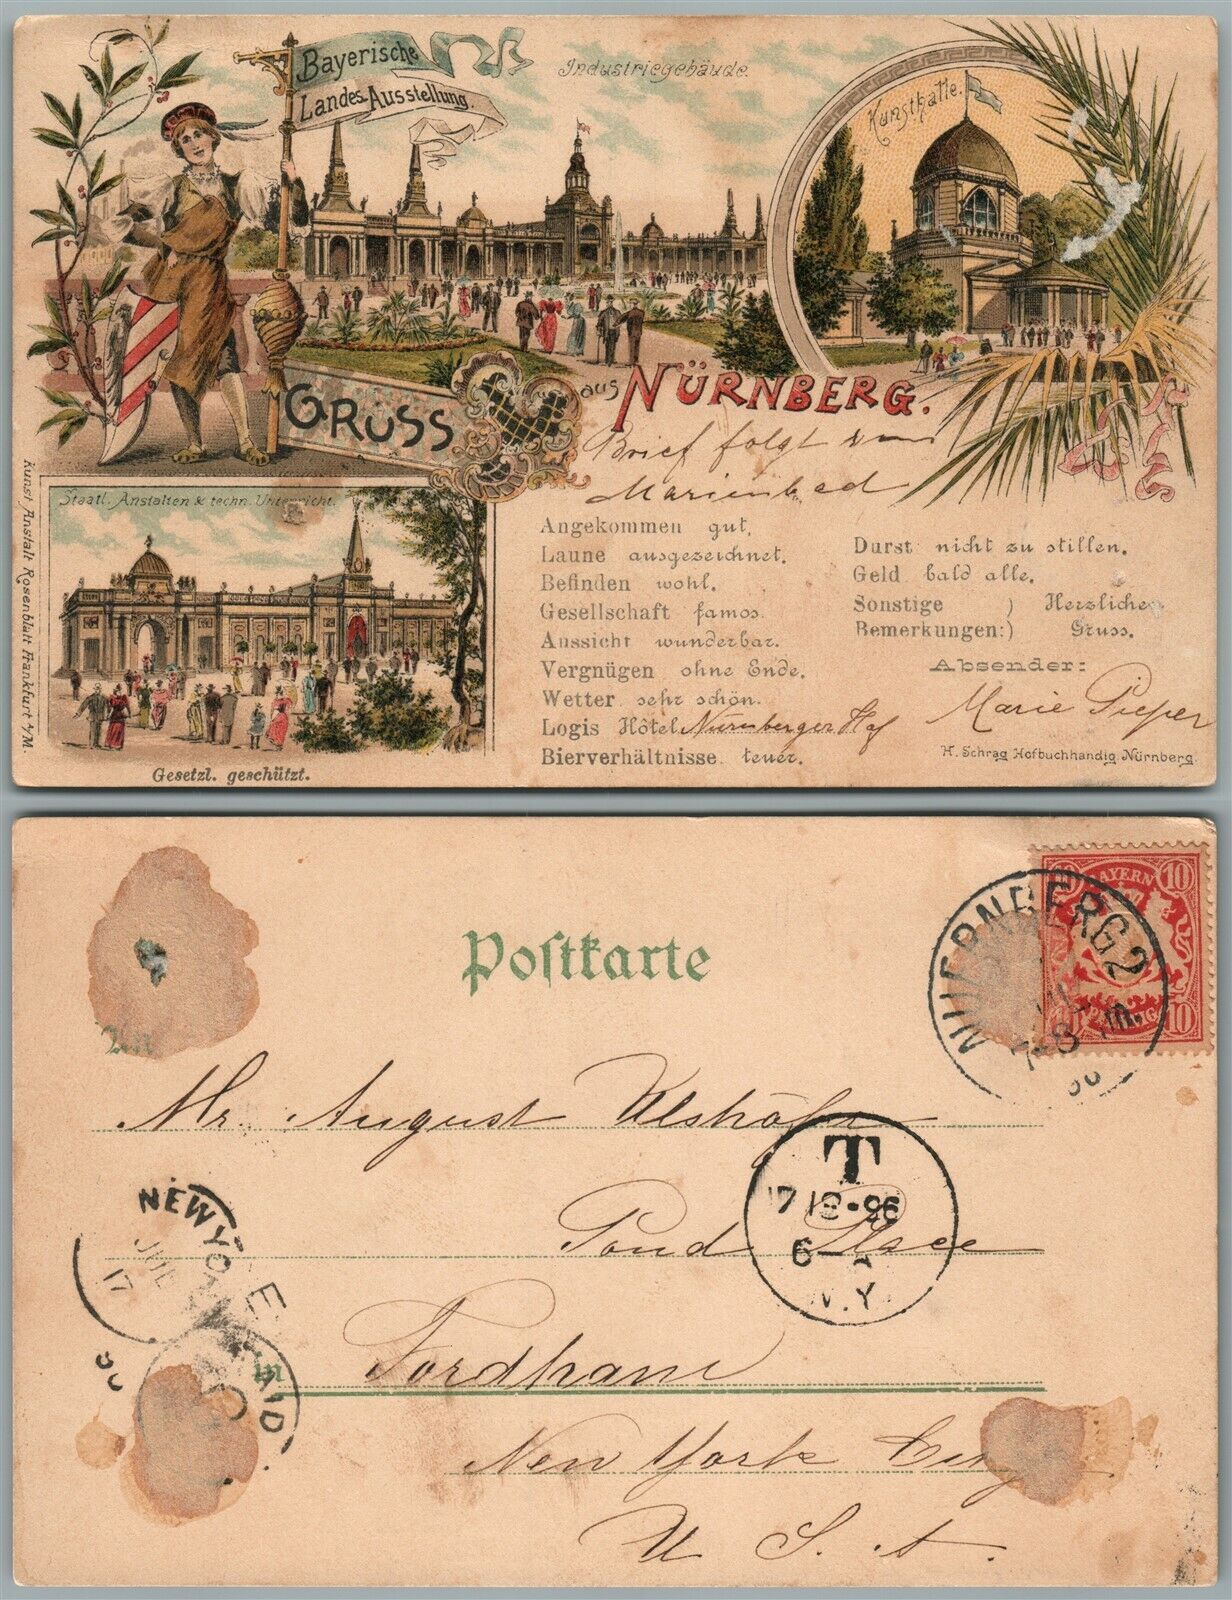 Bayerische
Landes-Ausstellung.
Industriegebäude.
Kunsthalle.
GRUSS
aus NÜRNBERG.
Brief folgt
Marienbad
Staatl. Anstalten & techn. Unterricht.
Gesetzl. geschützt.
Kunst Anstalt Rosenblatt Frankfurt a/M.
Angekommen gut,
Laune ausgezeichnet.
Befinden wohl.
Gesellschaft famos.
Aussicht wunderbar.
Vergnügen ohne Ende.
Wetter sehr schön.
Logis Hôtel Nürnberger Hof
Bierverhältnisse teuer.
Durst nicht zu stillen.
Geld bald alle.
Sonstige ) Herzlichen
Bemerkungen:) Gruss.
Absender:
Marie Pieper
H. Schrag Hofbuchhandlg Nürnberg.
Postkarte
10 BAYERN 10
10 PFENNIG 10
NUERNBERG 2
7-8 m.
An
Mr. August
Pond Place
in Fordham
New York City
U. S. A.
T
17 18-96
6-A
N.Y.
NEW YORK
17
PAID